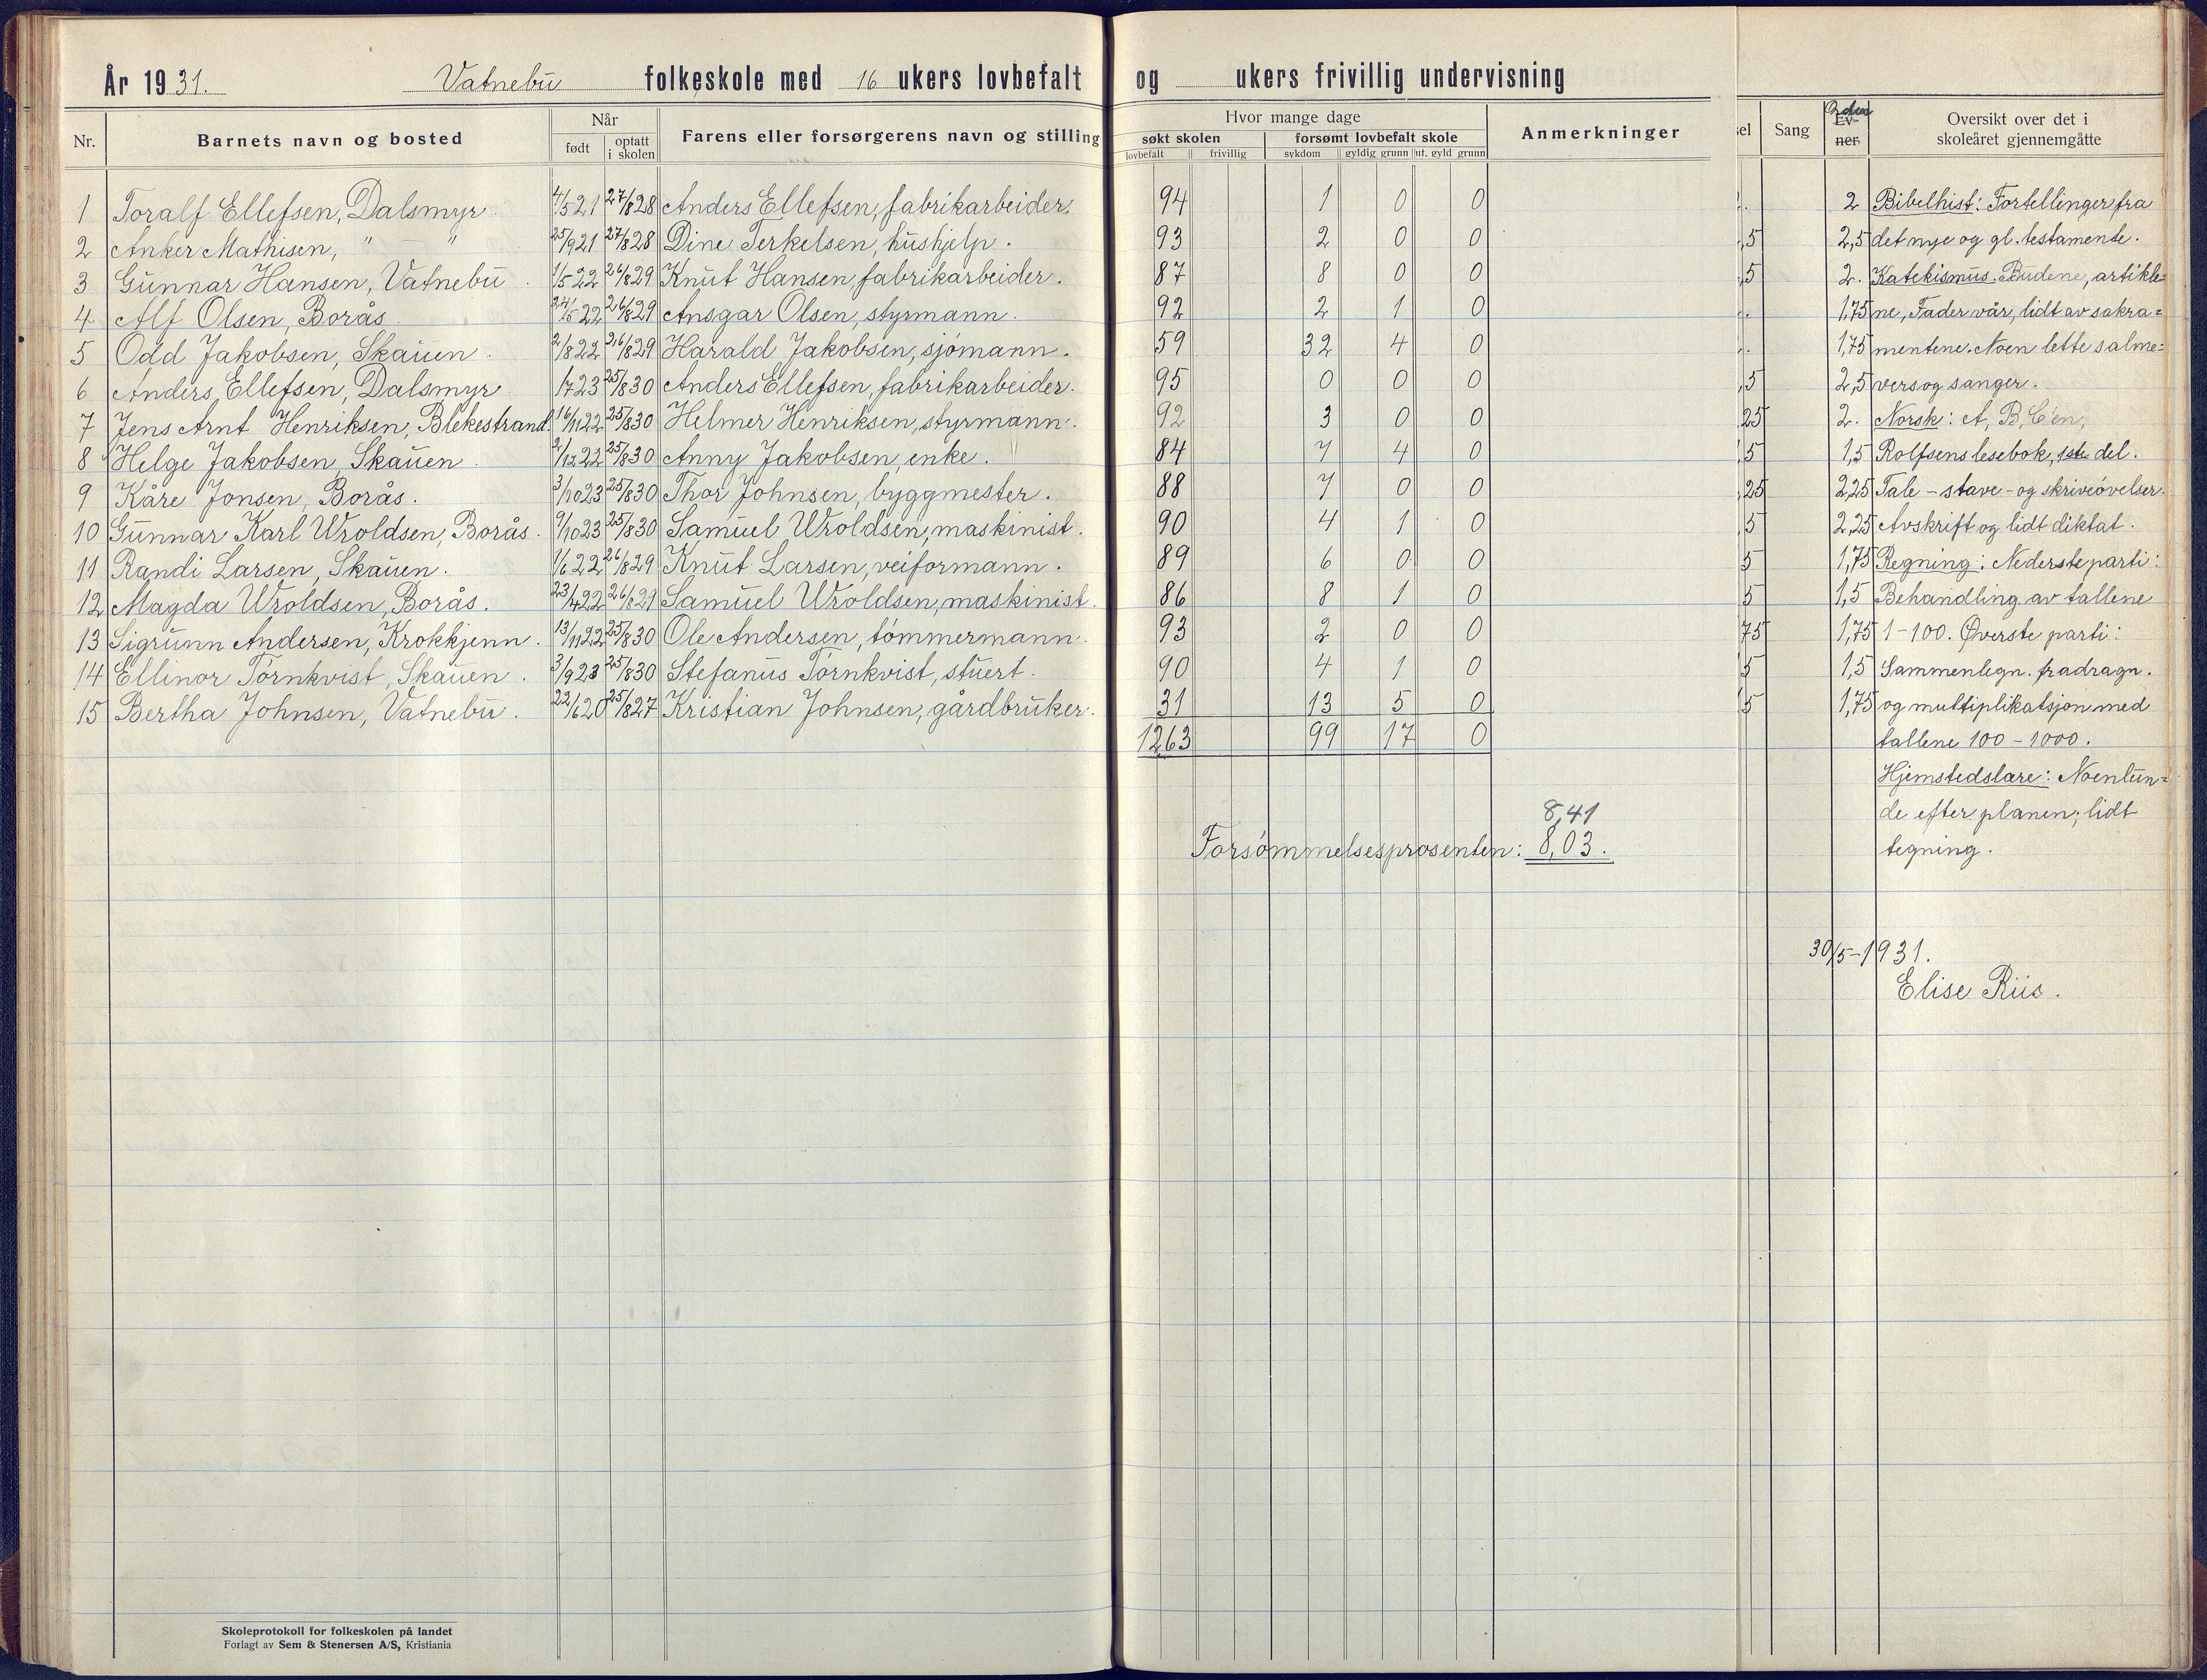 År 1931. Vatnebu folkeskole med 16 ukers lovbefalt og ukers frivillig undervisning
Nr. Barnets navn og bosted Når født optatt i skolen Farens eller forsørgerens navn og stilling Hvor mange dage søkt skolen lovbefalt frivillig forsømt lovbefalt skole sykdom gyldig grunn ut. gyld grunn Anmerkninger sel Sang Orden Ev-ner Oversikt over det i skoleåret gjennemgåtte
1 Toralf Ellefsen, Dalsmyr 4/5 21 27/8 28 Anders Ellefsen, fabrikarbeider. 94 1 0 0 2 Bibelhist: Fortellinger fra
2 Anker Mathisen, " — " 25/9 21 27/8 28 Dine Terkelsen, hushjelp. 93 2 0 0 ,5 2,5 det nye og gl. testamente.
3 Gunnar Hansen, Vatnebu 1/5 22 26/8 29 Knut Hansen, fabrikarbeider. 87 8 0 0 ,5 2. Katekismus. Budene, artikle=
4 Alf Olsen, Borås 24/5 22 26/8 29 Ansgar Olsen, styrmann. 92 2 1 0 1,75 ne, Fader vår, lidt av sakra=
5 Odd Jakobsen, Skauen. 2/8 22 26/8 29 Harald Jakobsen, sjømann. 59 32 4 0 1,75 mentene. Noen lette salme=
6 Anders Ellefsen, Dalsmyr 1/7 23 25/8 30 Anders Ellefsen, fabrikarbeider. 95 0 0 0 ,5 2,5 vers og sanger.
7 Jens Arnt Henriksen, Blekestrand. 16/11 22 25/8 30 Helmer Henriksen, styrmann. 92 3 0 0 25 2. Norsk: A, B, C'en,
8 Helge Jakobsen, Skauen. 2/12 22 25/8 30 Anny Jakobsen, enke. 84 7 4 0 ,5 1,5 Rolfsens lesebok, 1ste del.
9 Kåre Jonsen, Borås. 3/10 23 25/8 30 Thor Johnsen, byggmester. 88 7 0 0 ,25 2,25 Tale - stave - og skriveøvelser.
10 Gunnar Karl Wroldsen, Borås. 9/10 23 25/8 30 Samuel Wroldsen, maskinist. 90 4 1 0 ,5 2,25 Avskrift og lidt diktat.
11 Randi Larsen, Skauen. 1/6 22 26/8 29 Knut Larsen, veiformann. 89 6 0 0 5 1,75 Regning: Nederste parti:
12 Magda Wroldsen, Borås. 23/4 22 26/8 29 Samuel Wroldsen, maskinist. 86 8 1 0 5 1,5 Behandling av tallene
13 Sigrunn Andersen, Krokkjenn. 13/11 22 25/8 30 Ole Andersen, tømmermann. 93 2 0 0 75 1,75 1-100. Øverste parti:
14 Ellinor Törnkvist, Skauen. 3/9 23 25/8 30 Stefanus Törnkvist, stuert. 90 4 1 0 5 1,5 Sammenlegn. fradragn.
15 Bertha Johnsen, Vatnebu. 22/6 20 25/8 27 Kristian Johnsen, gårdbruker. 31 13 5 0 5 1,75 og multiplikatsjon med
1263 99 17 0 tallene 100-1000.
Hjemstedslære: Noenlun=
8,41 de efter planen; lidt
Forsømmelsesprosenten: 8,03. tegning.
30/5-1931.
Elise Riis.
Skoleprotokoll for folkeskolen på landet
Forlagt av Sem & Stenersen A/S, Kristiania